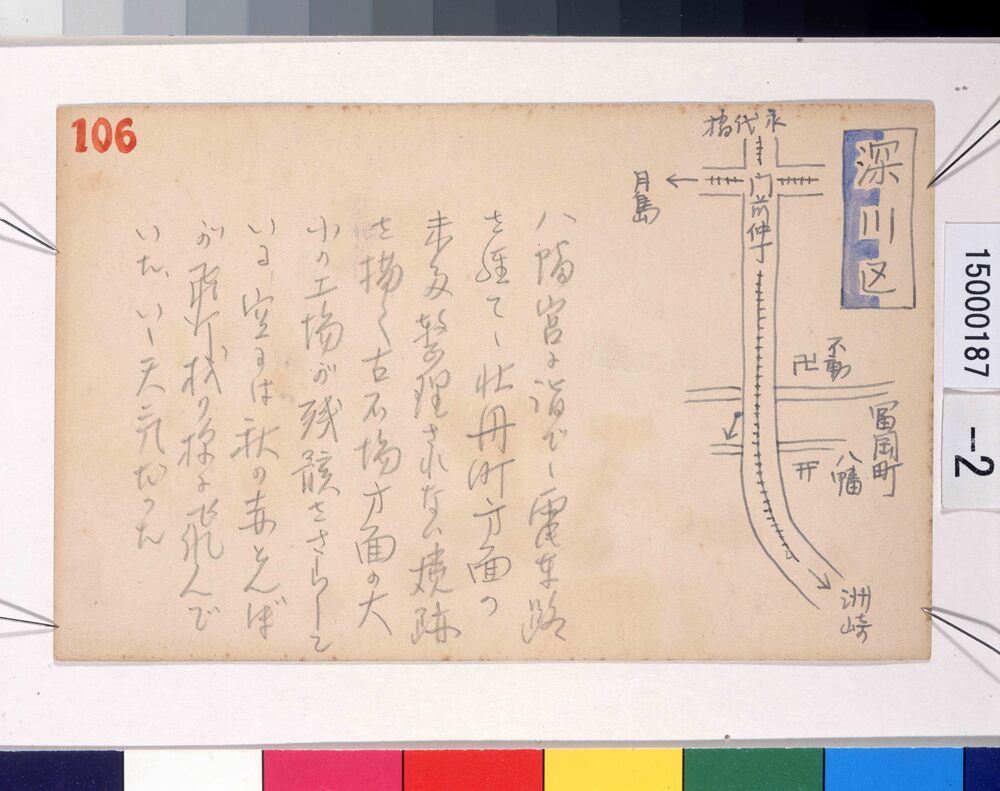 106
深川区
永代橋
門前仲丁
月島
不動
卍
富岡町
八幡
洲崎
八幡宮に詣で、電車路
を経て、牡丹町方面の
未だ整理されない焼跡
を描く 古石場方面の大
小の工場が残骸をさらして
いる、空には秋の赤とんぼ
が 飛んで
いた、いゝ天気だった
15000187
-2